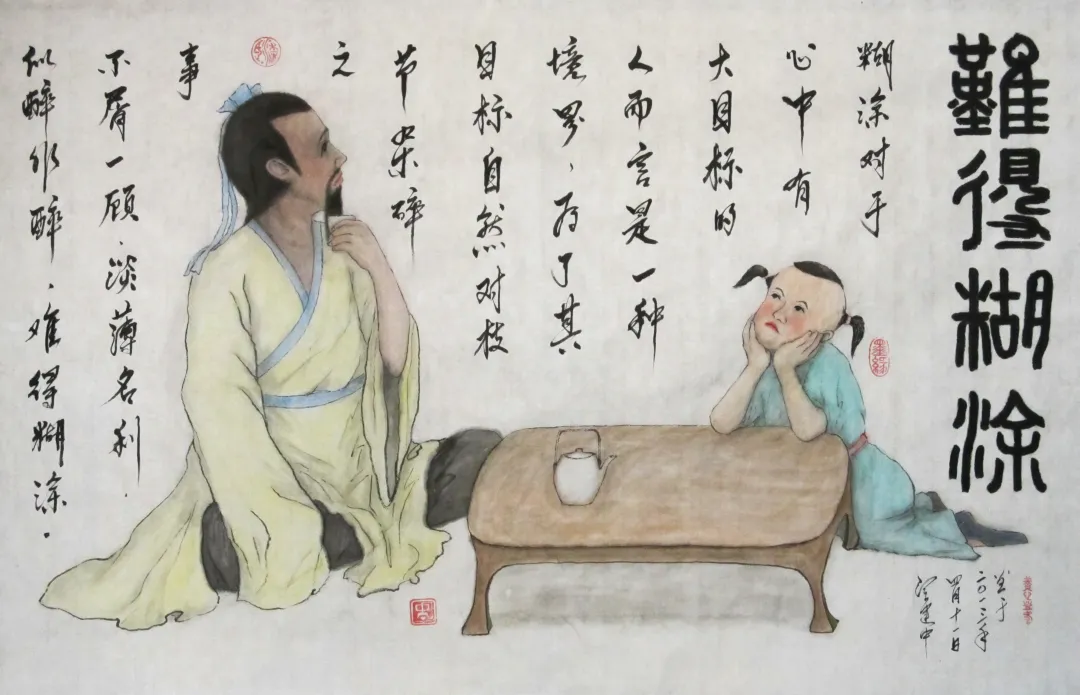 難得糊涂
糊涂对于
心中有
大目标的
人而言是一种
境界、为了其
目标自然对枝
节杂碎
之
事
不屑一顾.淡薄名利.
似醉非醉、难得糊涂.
于
二〇一三年
四月十一日
建中